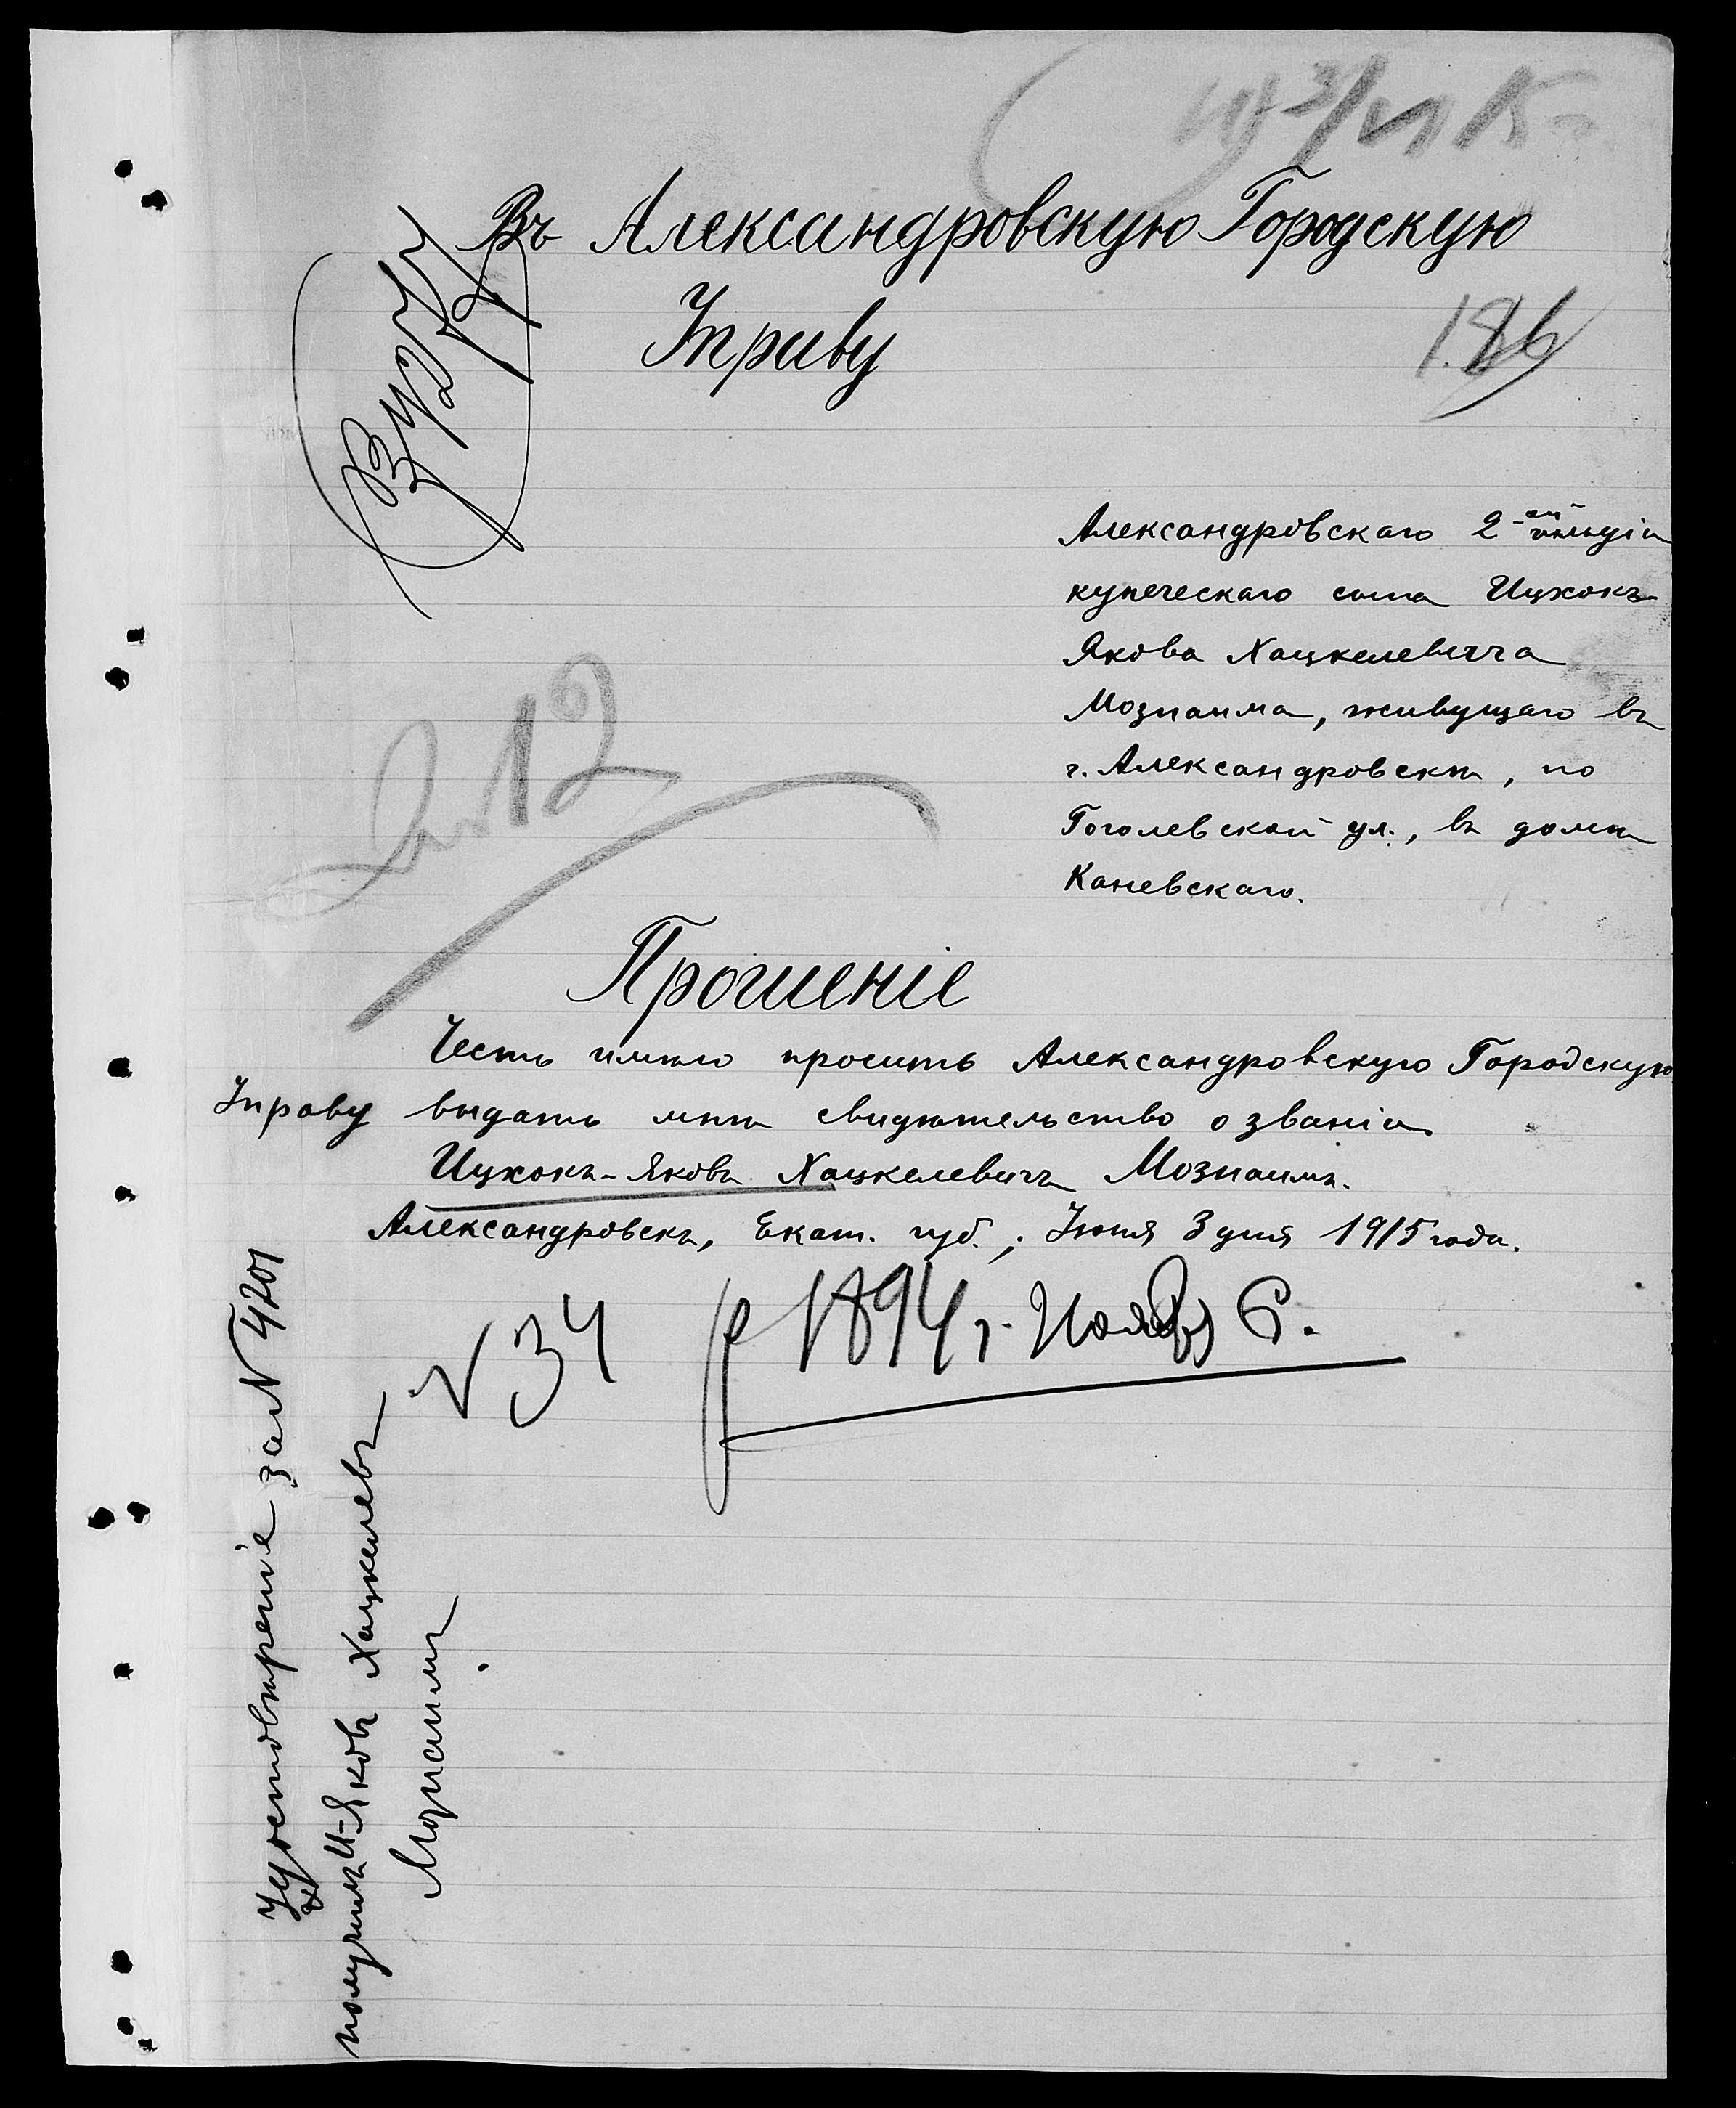 3/VI 15
Въ Александровскую Городскую
Управу
186
Александровскаго 2-ой гильдіи
купеческаго сына Ицхокъ-
Якова Хацкелевича
Мознаима, живущаго въ
г. Александровскѣ, по
Гоголевской ул., въ домѣ
Каневскаго.
Прошеніе
Честь имѣю просить Александровскую Городскую
Управу выдать мнѣ свидѣтельство о званіи
Ицхокъ-Яковъ Хацкелевичъ Мознаимъ.
Александровскъ, Екат. губ.; Іюня 3 дня 1915 года.
N 34 р 1894 г. Ноября 6.
Удостовѣреніе за N 4201
получилъ И-Яковъ Хацкелевъ
Мознаимъ